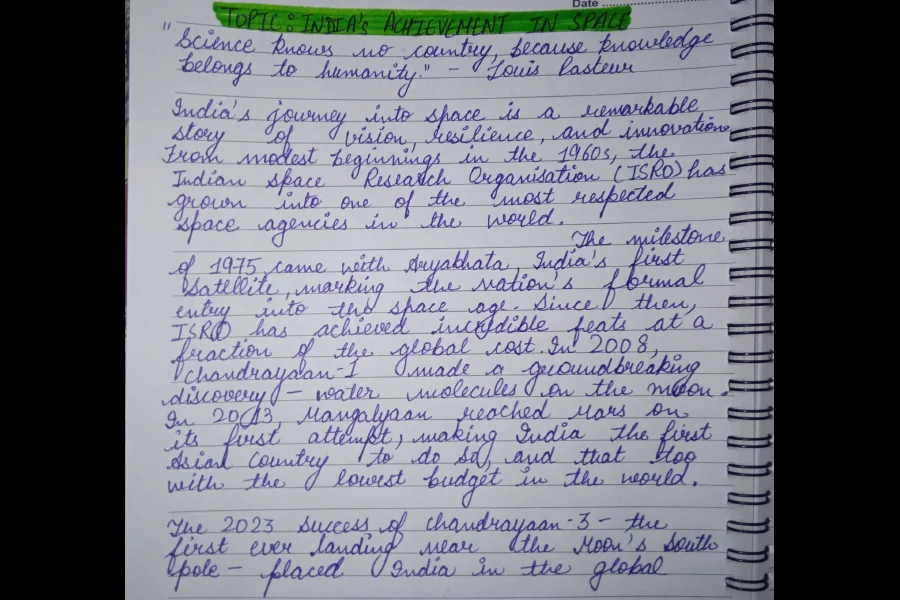 Date
TOPIC: INDIA's ACHIEVEMENT IN SPACE
"Science knows no country, because knowledge
belongs to humanity." - Louis Pasteur
India's journey into space is a remarkable
story of vision, resilience, and innovation.
From modest beginnings in the 1960s, the
Indian space Research Organisation (ISRO) has
grown into one of the most respected
space agencies in the world.
The milestone
of 1975 came with Aryabhata, India's first
satellite, marking the nation's formal
entry into the space age. Since then,
ISRO has achieved incredible feats at a
fraction of the global cost. In 2008,
Chandrayaan-1 made a groundbreaking
discovery - water molecules on the moon.
In 2013, Mangalyaan reached Mars on
its first attempt, making India the first
Asian country to do so, and that too
with the lowest budget in the world.
The 2023 success of Chandrayaan-3 - the
first ever landing near the Moon's South
pole - placed India in the global